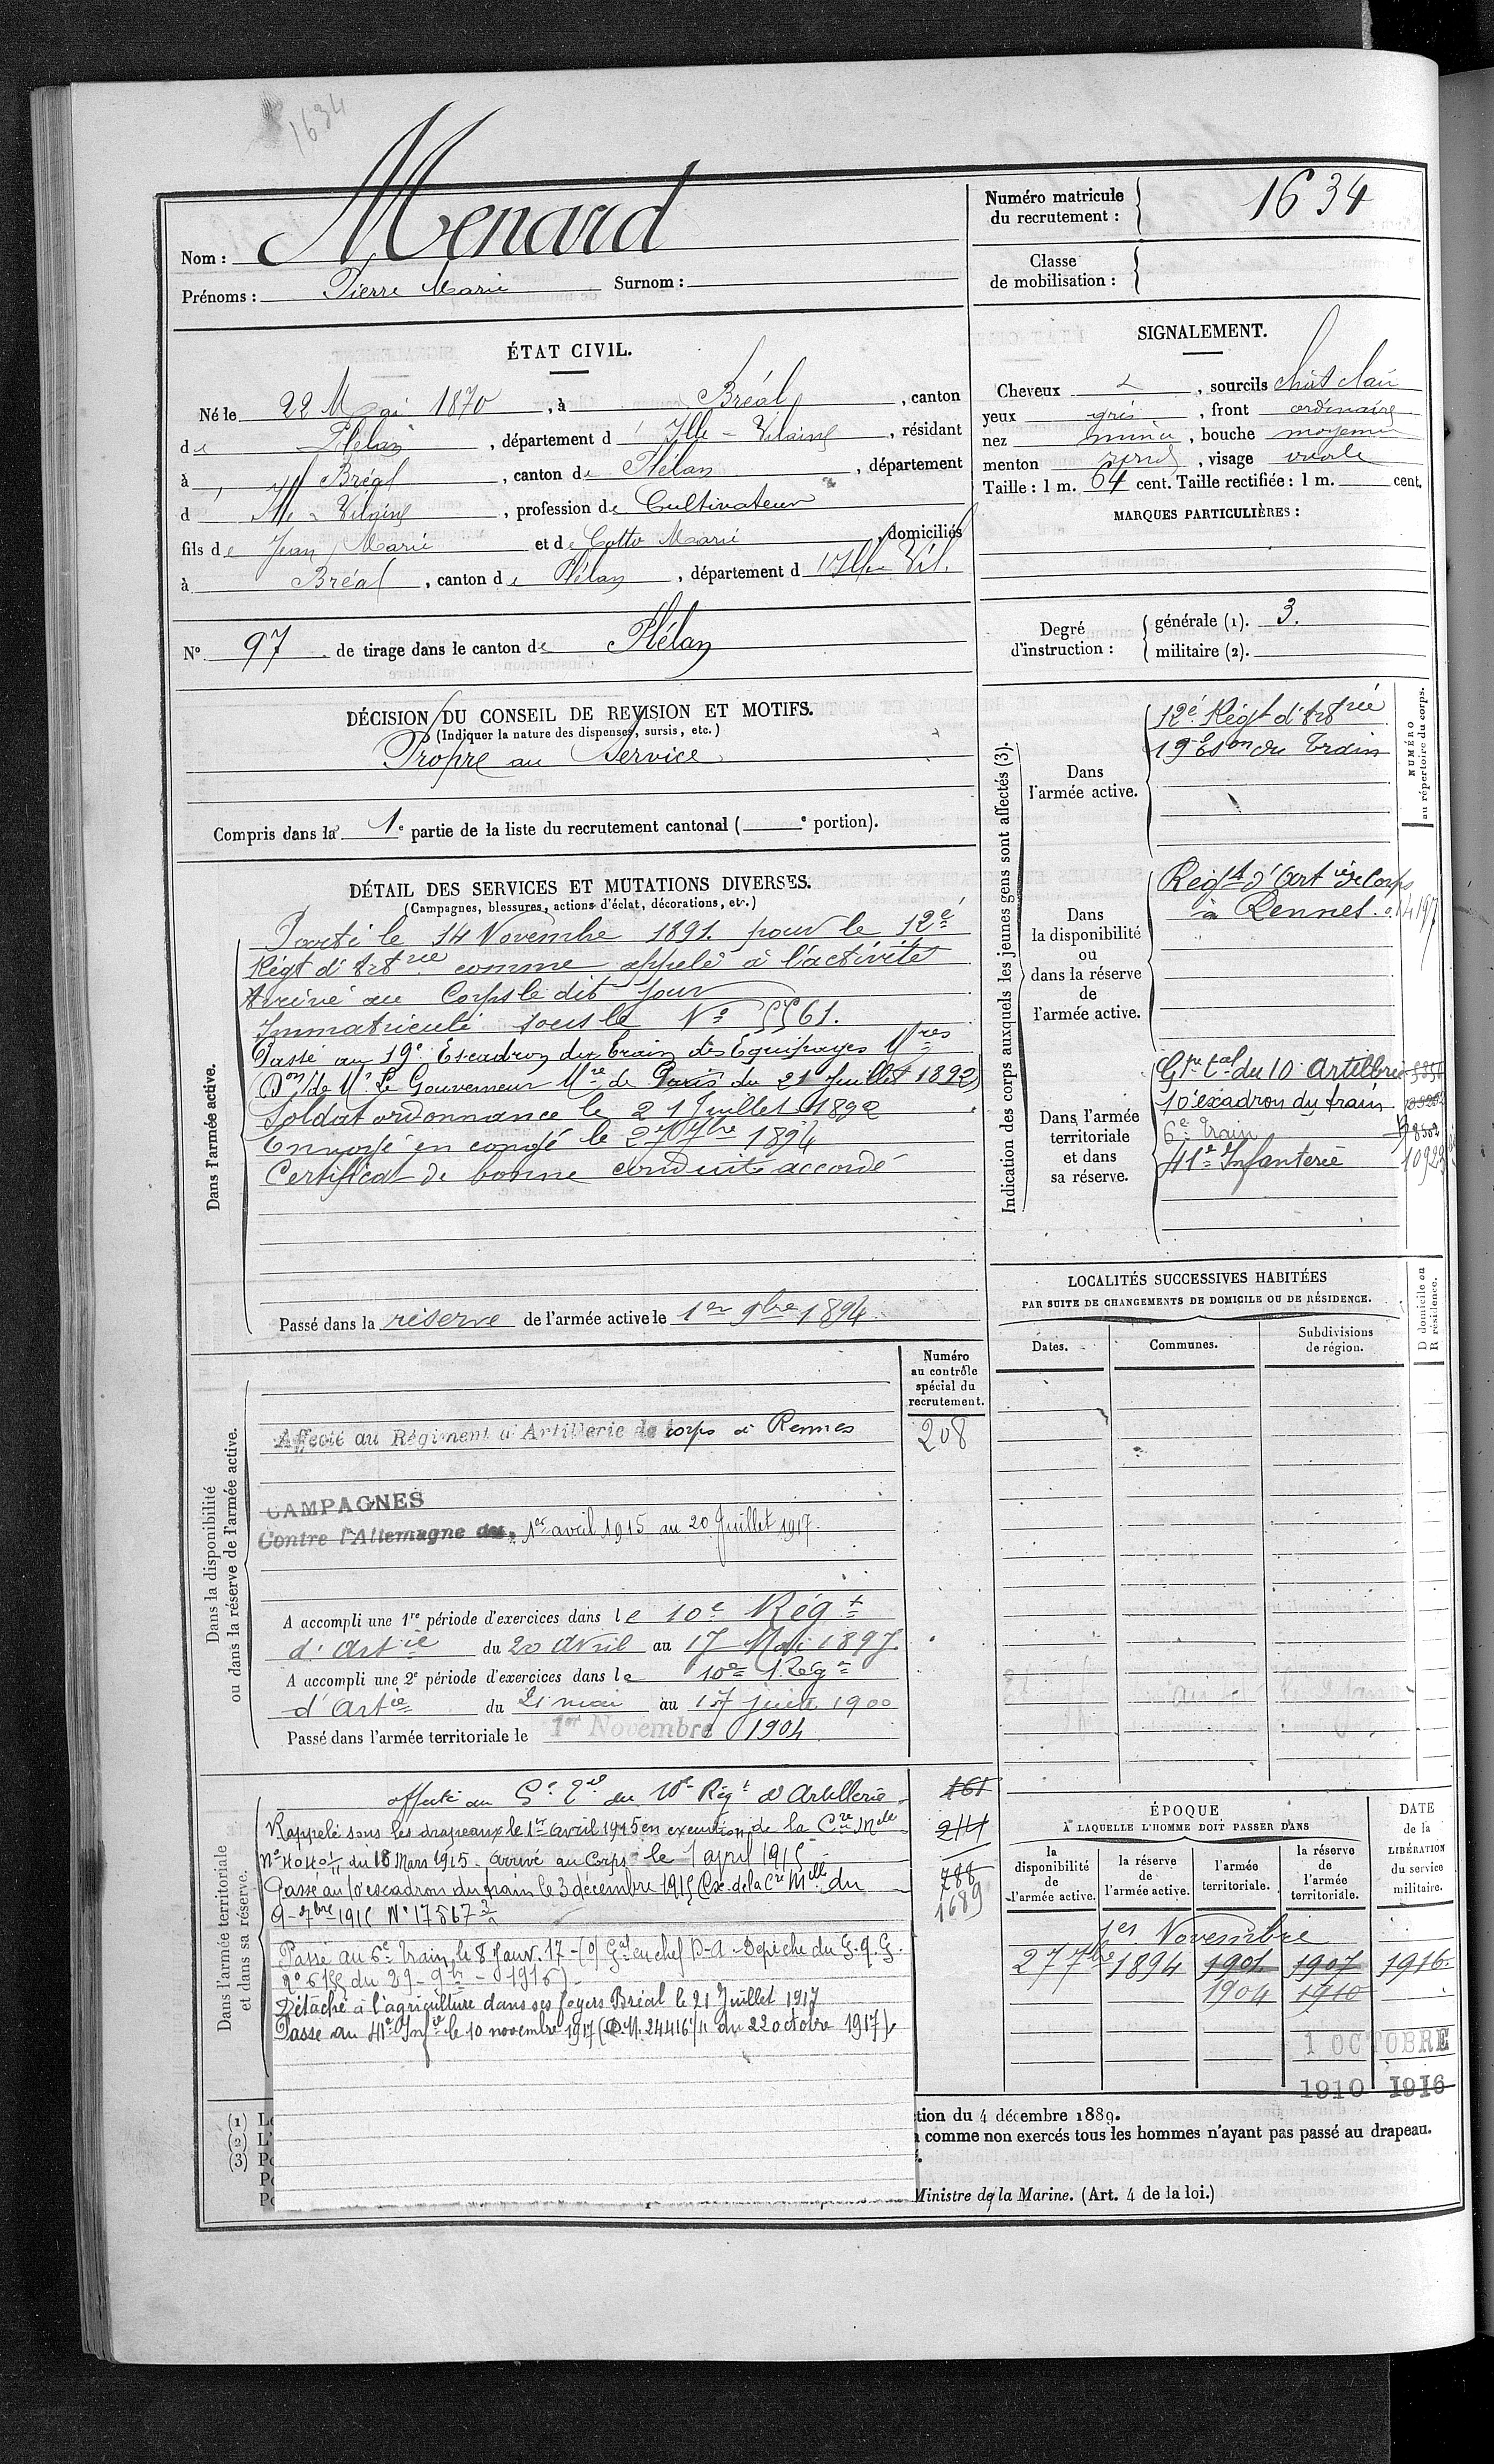 1634
Nom : Menard
Prénoms : Pierre Marie Surnom :
Numéro matricule du recrutement : 1634
Classe de mobilisation :
ÉTAT CIVIL.
Né le 22 Mai 1870, à Bréal, canton
de Plélan, département d'Ille-Vilaine, résidant
à Bréal, canton de Plélan, département
d'Ille-Vilaine, profession de Cultivateur
fils de Jean Marie et de Cotto Marie, domiciliés
à Bréal, canton de Plélan, département d'Ille Vil.
SIGNALEMENT.
Cheveux, sourcils chât clair
yeux gris, front ordinaire
nez mince, bouche moyenne
menton rond, visage ovale
Taille : 1 m. 64 cent. Taille rectifiée : 1 m. cent.
MARQUES PARTICULIÈRES :
N° 97 de tirage dans le canton de Plélan
Degré d'instruction : générale (1). 3.
militaire (2).
DÉCISION DU CONSEIL DE REVISION ET MOTIFS.
(Indiquer la nature des dispenses, sursis, etc.)
Propre au Service
Compris dans la 1e partie de la liste du recrutement cantonal ( e portion).
DÉTAIL DES SERVICES ET MUTATIONS DIVERSES.
(Campagnes, blessures, actions d'éclat, décorations, etc.)
Dans l'armée active.
Parti le 14 Novembre 1891. pour le 12e
Régt d'Artrie comme appelé à l'activité
Arrivé au Corps le dit jour
Immatriculé sous le N° 5561.
Passé au 19e Escadron du train des Equipages Mres
(Don de Mr Le Gouverneur Mre de Paris du 21 Juillet 1892)
Soldat ordonnance le 21 Juillet 1892
Envoyé en congé le 27 7bre 1894
Certificat de bonne conduite accordé
Passé dans la réserve de l'armée active le 1er 9bre 1894
Indication des corps auxquels les jeunes gens sont affectés (3).
NUMÉRO au répertoire du corps.
Dans l'armée active.
12e Régt d'Artrie
19e Eson du Train
Dans la disponibilité ou dans la réserve de l'armée active.
Regt d'Artie de Corps
à Rennes
Dans l'armée territoriale et dans sa réserve.
Gpe tal du 10 Artillerie
10e escadron du train
6e Train
41e Infanterie
LOCALITÉS SUCCESSIVES HABITÉES
PAR SUITE DE CHANGEMENTS DE DOMICILE OU DE RÉSIDENCE.
Dates. Communes. Subdivisions de région.
D domicile ou R résidence.
Numéro au contrôle spécial du recrutement.
208
Dans la disponibilité ou dans la réserve de l'armée active.
Affecté au Régiment d'Artillerie de corps à Rennes
CAMPAGNES
Contre l'Allemagne du 1er avril 1915 au 20 Juillet 1917.
A accompli une 1re période d'exercices dans le 10e Régt
d'Artie du 20 Avril au 17 Mai 1897
A accompli une 2e période d'exercices dans le 10e Régt
d'Artie du 21 mai au 17 juin 1900
Passé dans l'armée territoriale le 1er Novembre 1904
Dans l'armée territoriale et dans sa réserve.
affecté au Ge Tal du 10e Régt d'Artillerie
161
Rappelé sous les drapeaux le 1er avril 1915 en exécution de la Cre Melle
N° du 18 Mars 1915. Arrivé au Corps le 1 april 1915
788
Passé au 10e escadron du train le 3 décembre 1915 (Ex. de la Cre Melle du
1689
9-7bre 1915 N° 17567
Passé au 6e Train, le 8 Janv. 17 - (o) Gal en chef D-A. Dépêche du G.Q.G.
du 29-9bre-1916)
Détaché à l'agriculture dans ses foyers Bréal le 21 Juillet 1917
Passé au 41e Infie le 10 novembre 1917 (D.M. 24416 1/11 du 22 octobre 1917).
ÉPOQUE
À LAQUELLE L'HOMME DOIT PASSER DANS
la disponibilité de l'armée active. la réserve de l'armée active. l'armée territoriale. la réserve de l'armée territoriale.
DATE de la LIBÉRATION du service militaire.
1er Novembre
27 7bre 1894 1901 1907 1916
1904 1910
1 OCTOBRE
1910 1916
(1)
(2)
(3)
tion du 4 décembre 1889.
comme non exercés tous les hommes n'ayant pas passé au drapeau.
Ministre de la Marine. (Art. 4 de la loi.)